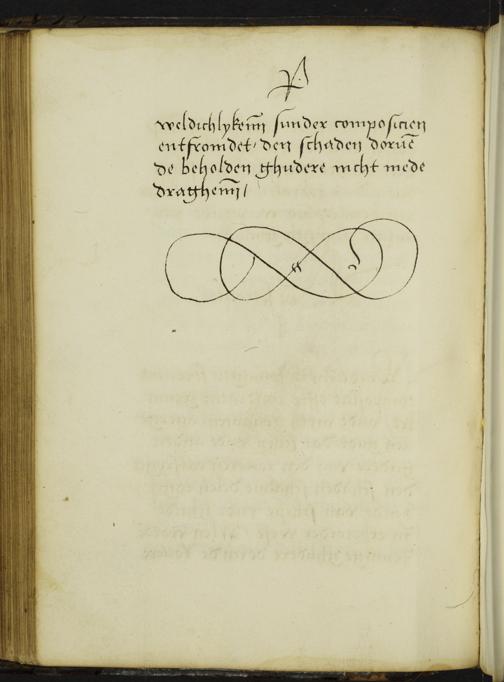 P
weldichlykem̄ sunder composicien
entfromdet· den schaden doruē
de beholden ghudere nicht mede
draghem̄/